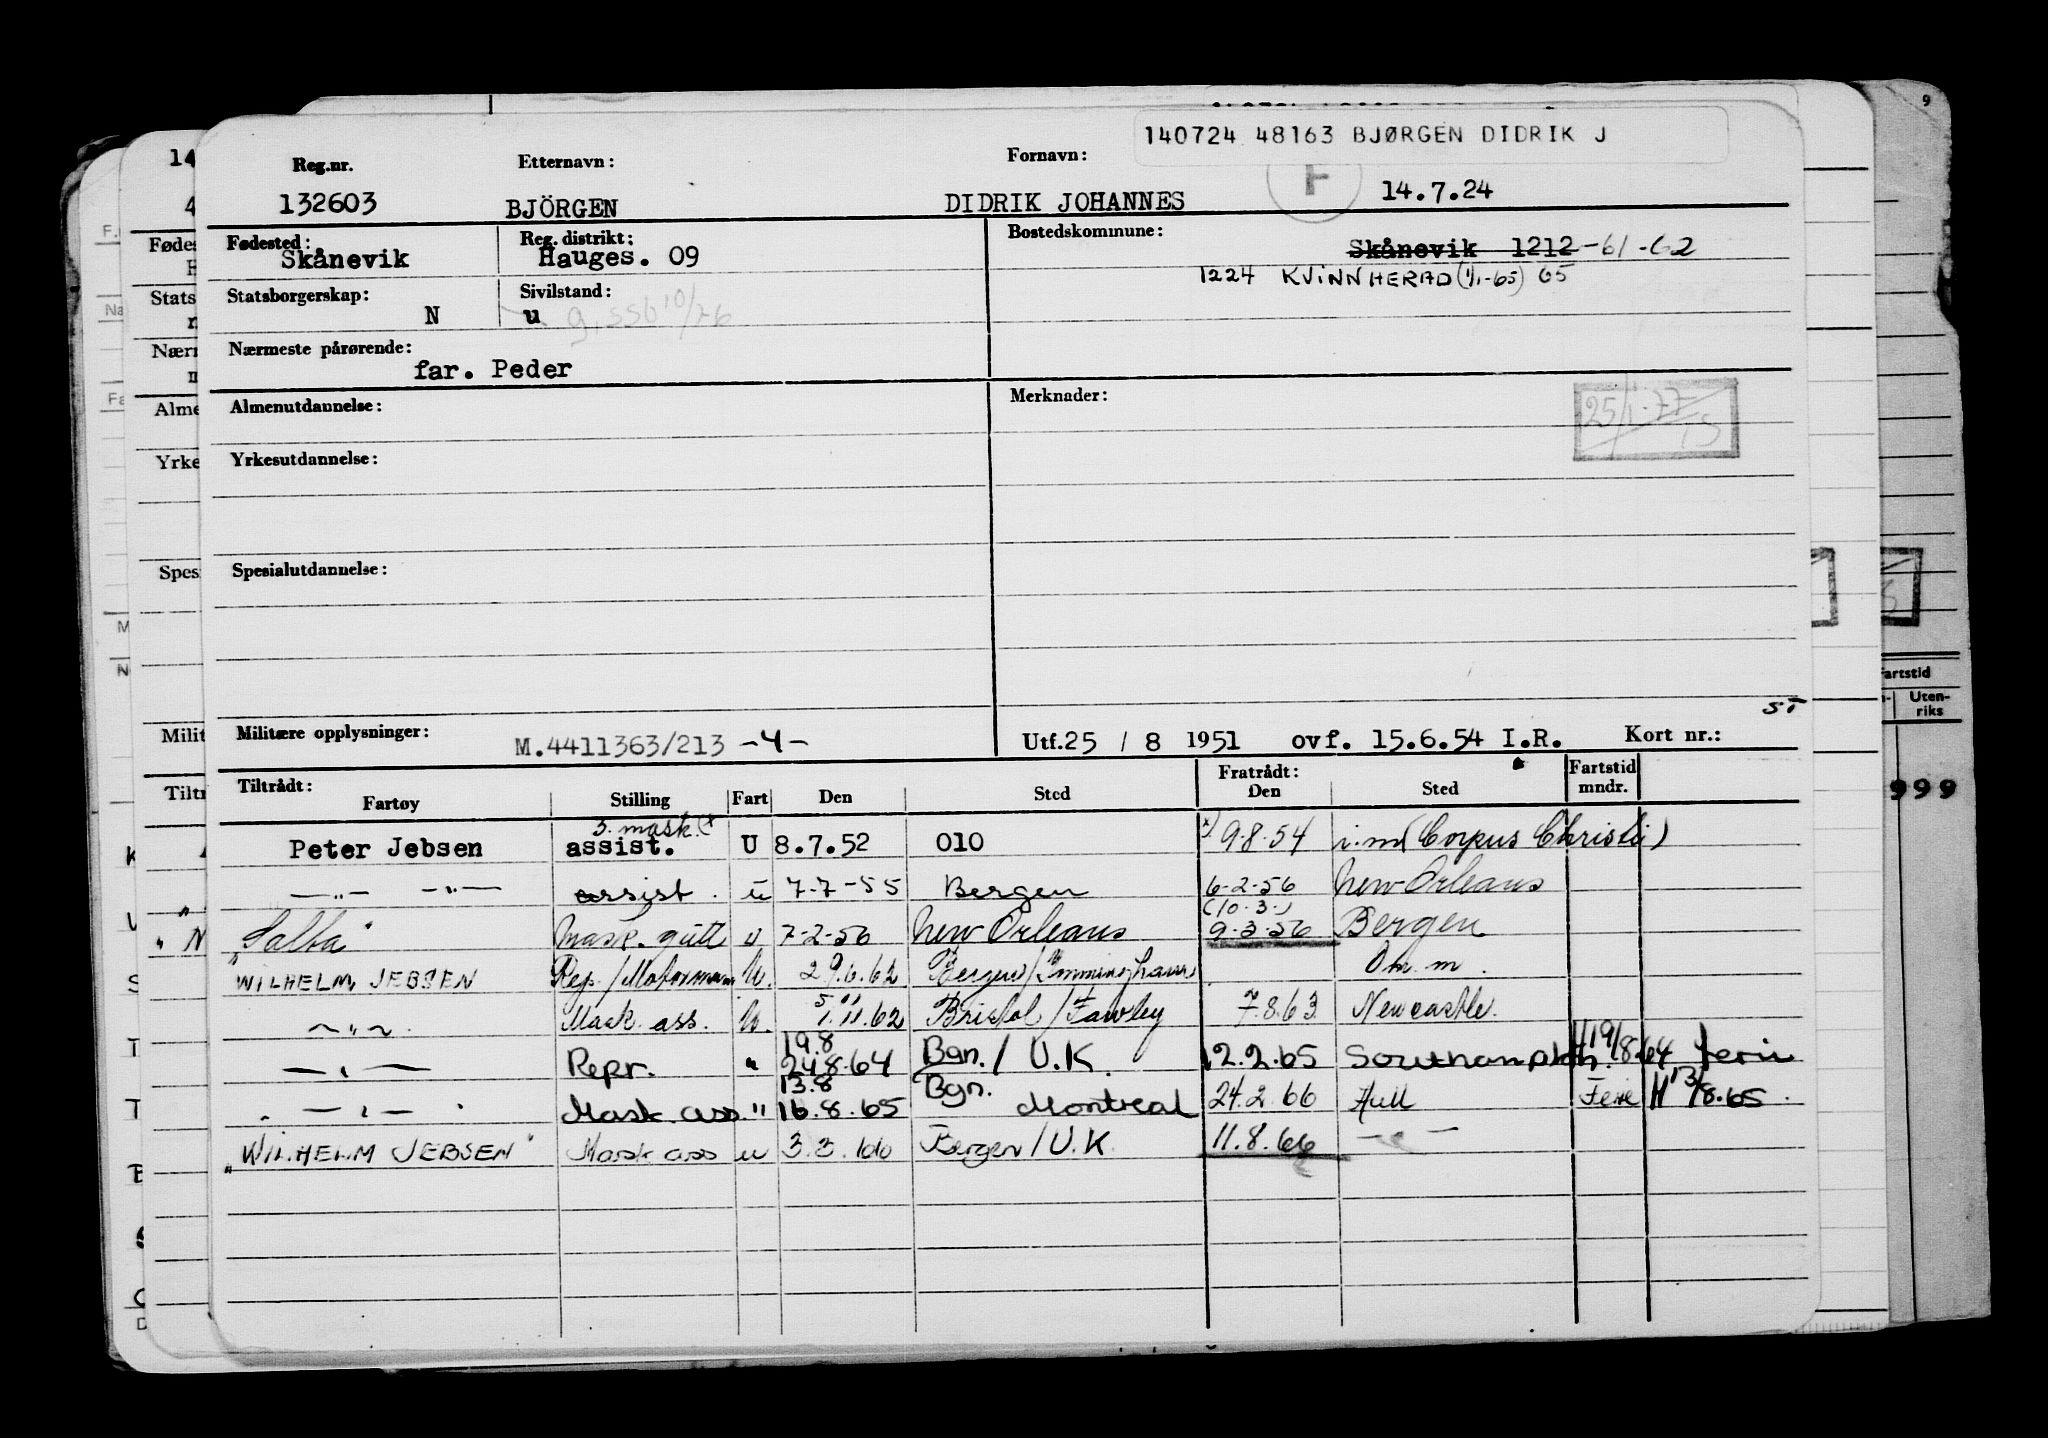 140724 48163 BJØRGEN DIDRIK J
Reg.nr. Etternavn: Fornavn: F
132603 BJÖRGEN DIDRIK JOHANNES 14.7.24
Fødested: Reg. distrikt: Bostedskommune:
Skånevik Hauges. 09 Skånevik 1212-61-62
1224 KVINNHERAD (1/1-65) 65
Statsborgerskap: Sivilstand:
N u g. ssb 10/76
Nærmeste pårørende:
far. Peder
Almenutdannelse: Merknader:
25/1-77
Yrkesutdannelse:
Spesialutdannelse:
ST
Militære opplysninger: M.4411363/213 -4- Utf.25 / 8 1951 ovf. 15.6.54 I.R. Kort nr.:
Tiltrådt: Fratrådt: Fartstid
Fartøy Stilling Fart Den Sted Den Sted mndr.
3. mask. (x
Peter Jebsen assist. U 8.7.52 010 x) 9-8-54 i.m (Corpus Christi)
—"— —"— assist. u 7-7-55 Bergen 6-2-56 New Orleans
(10.3.)
"Salta" Mask. gutt u 7-2-56 New Orleans 9-3-56 Bergen
"WILHELM JEBSEN Rep./Motormann U. 29.6.62 Bergen/Immingham Om.m.
5.11
—"—. Mask. ass. U. 1.11.62 Bristol/Fawley 7.8.63 Newcastle.
19.8
—"— Repr. " 24.8.64 Bgn./U.K. 12.2.65 Southampton. H 19/8-64 ferie
13.8
—"— Mask. ass. " 16.8.65 Bgn. Montreal 24.2.66 Hull Ferie H 13/8.65.
"WILHELM JEBSEN" Mask ass u 3.3.66 Bergen/U.K. 11.8.66 —"—
Fartstid
Uten-
riks
999
9